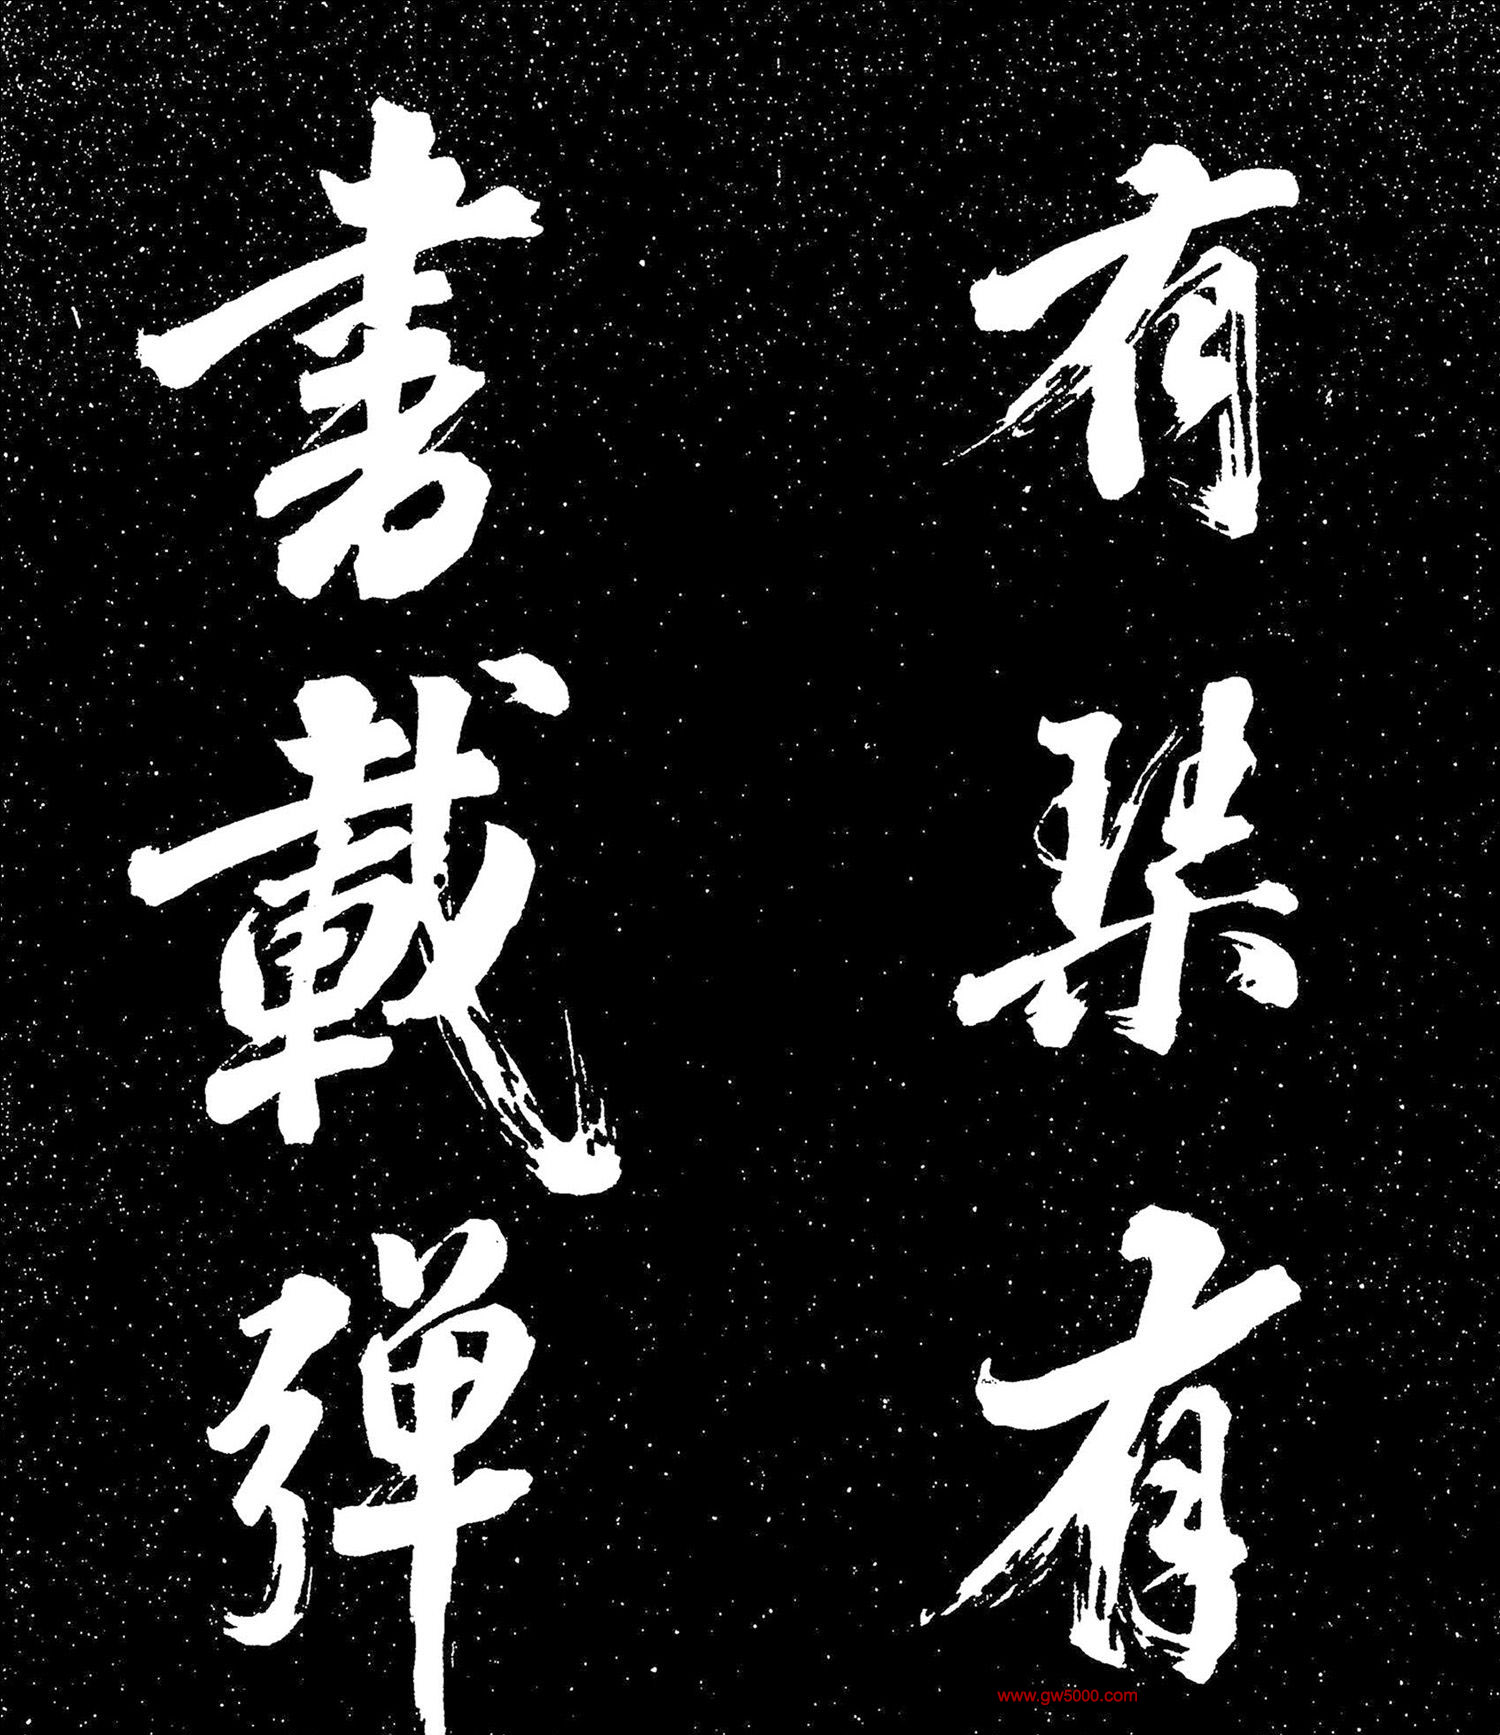 有琴有
書載彈
www.gw5000.com